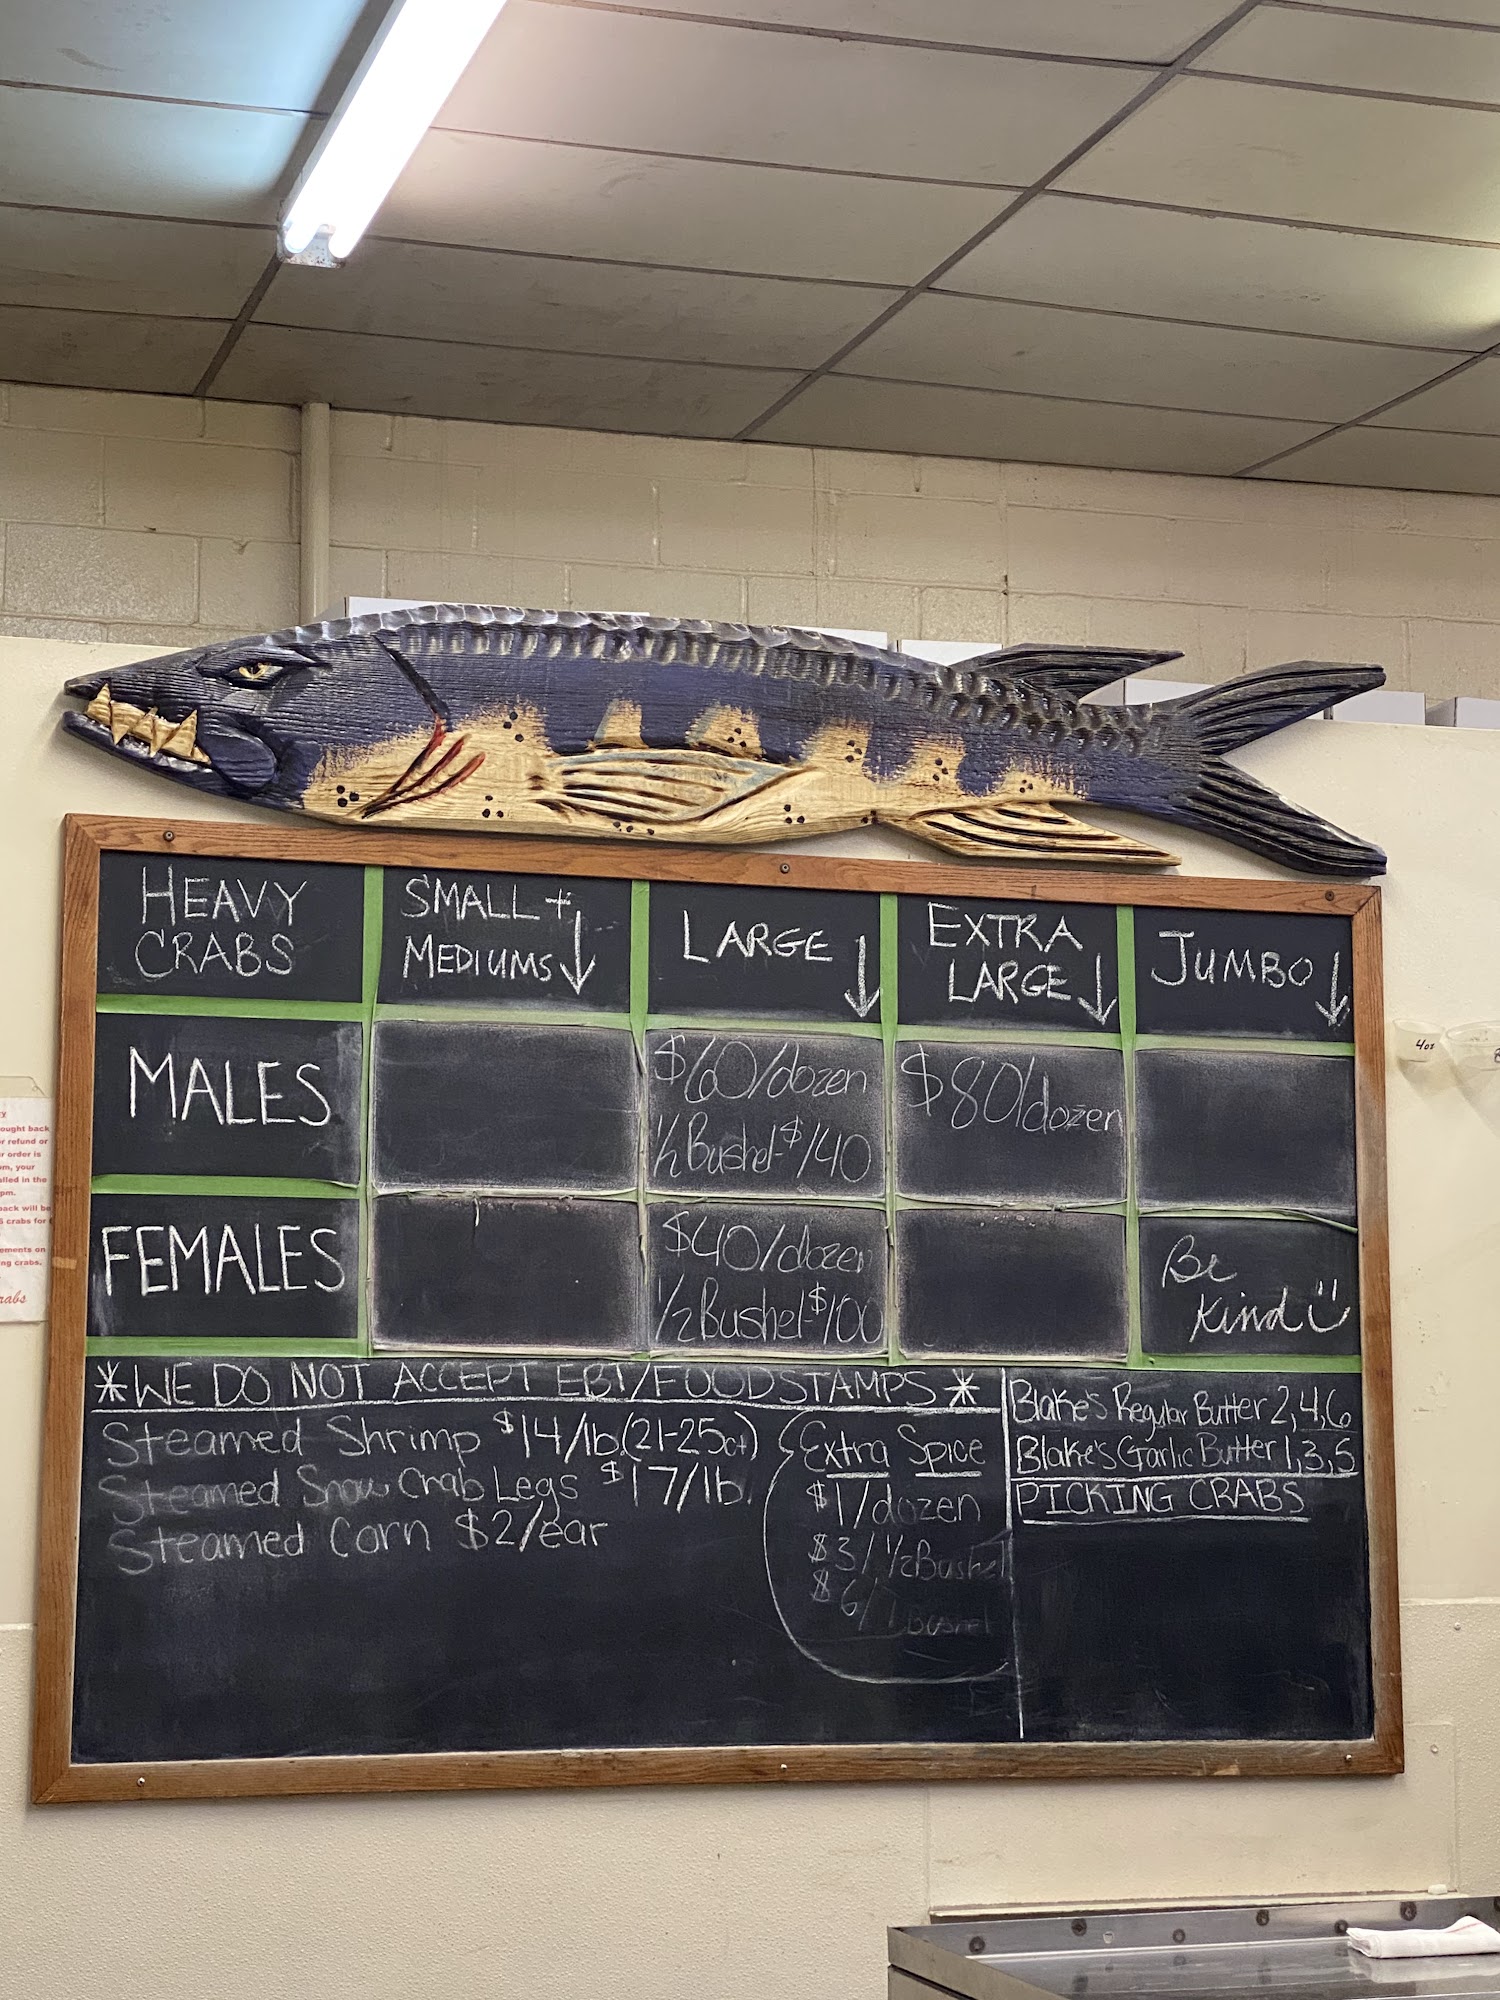 HEAVY
CRABS
SMALL +
MEDIUMS ↓
LARGE ↓
EXTRA
LARGE ↓
JUMBO ↓
MALES
$60/dozen
1/2 Bushel-$140
$80/dozen
FEMALES
$40/dozen
1/2 Bushel-$100
Be
Kind
*WE DO NOT ACCEPT EBT/FOODSTAMPS*
Steamed Shrimp $14/lb.(21-25ct)
Steamed Snow Crab Legs $17/lb.
Steamed Corn $2/ear
Extra Spice
$1/dozen
$3/ 1/2 Bushel
$6/1 Bushel
Blake's Regular Butter 2,4,6
Blake's Garlic Butter 1,3,5
PICKING CRABS
4oz
ought back
r refund or
r order is
pm, your
lled in the
pm.
back will be
crabs for
ements on
ng crabs.
rabs